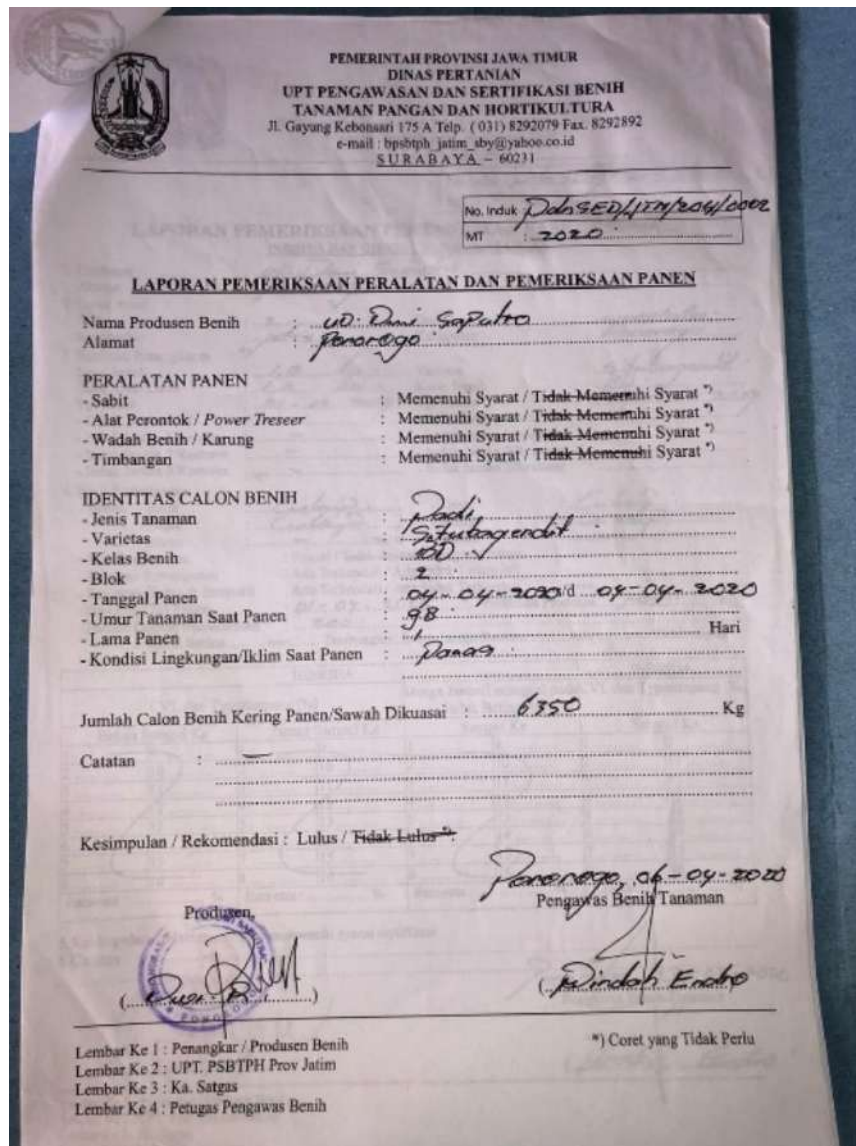 PEMERINTAH PROVINSI JAWA TIMUR
DINAS PERTANIAN
UPT PENGAWASAN DAN SERTIFIKASI BENIH
TANAMAN PANGAN DAN HORTIKULTURA
Jl. Gayung Kebonsari 175 A Telp. ( 031) 8292079 Fax. 8292892
e-mail : bpsbtph_jatim_sby@yahoo.co.id
SURABAYA – 60231
No. Induk
MT : 2020
LAPORAN PEMERIKSAAN PERALATAN DAN PEMERIKSAAN PANEN
Nama Produsen Benih : UD. Saputro
Alamat : Ponorogo
PERALATAN PANEN
- Sabit : Memenuhi Syarat / Tidak Memenuhi Syarat *)
- Alat Perontok / Power Treseer : Memenuhi Syarat / Tidak Memenuhi Syarat *)
- Wadah Benih / Karung : Memenuhi Syarat / Tidak Memenuhi Syarat *)
- Timbangan : Memenuhi Syarat / Tidak Memenuhi Syarat *)
IDENTITAS CALON BENIH
- Jenis Tanaman : Padi
- Varietas : Situbagendit
- Kelas Benih :
- Blok : 2
- Tanggal Panen : 04-04-2020 s/d 04-04-2020
- Umur Tanaman Saat Panen : 98
- Lama Panen : 1 Hari
- Kondisi Lingkungan/Iklim Saat Panen : Panas
Jumlah Calon Benih Kering Panen/Sawah Dikuasai : 6350 Kg
Catatan : —
Kesimpulan / Rekomendasi : Lulus / Tidak Lulus *).
Ponorogo, 06-04-2020
Produsen, Pengawas Benih Tanaman
Lembar Ke 1 : Penangkar / Produsen Benih *) Coret yang Tidak Perlu
Lembar Ke 2 : UPT. PSBTPH Prov Jatim
Lembar Ke 3 : Ka. Satgas
Lembar Ke 4 : Petugas Pengawas Benih